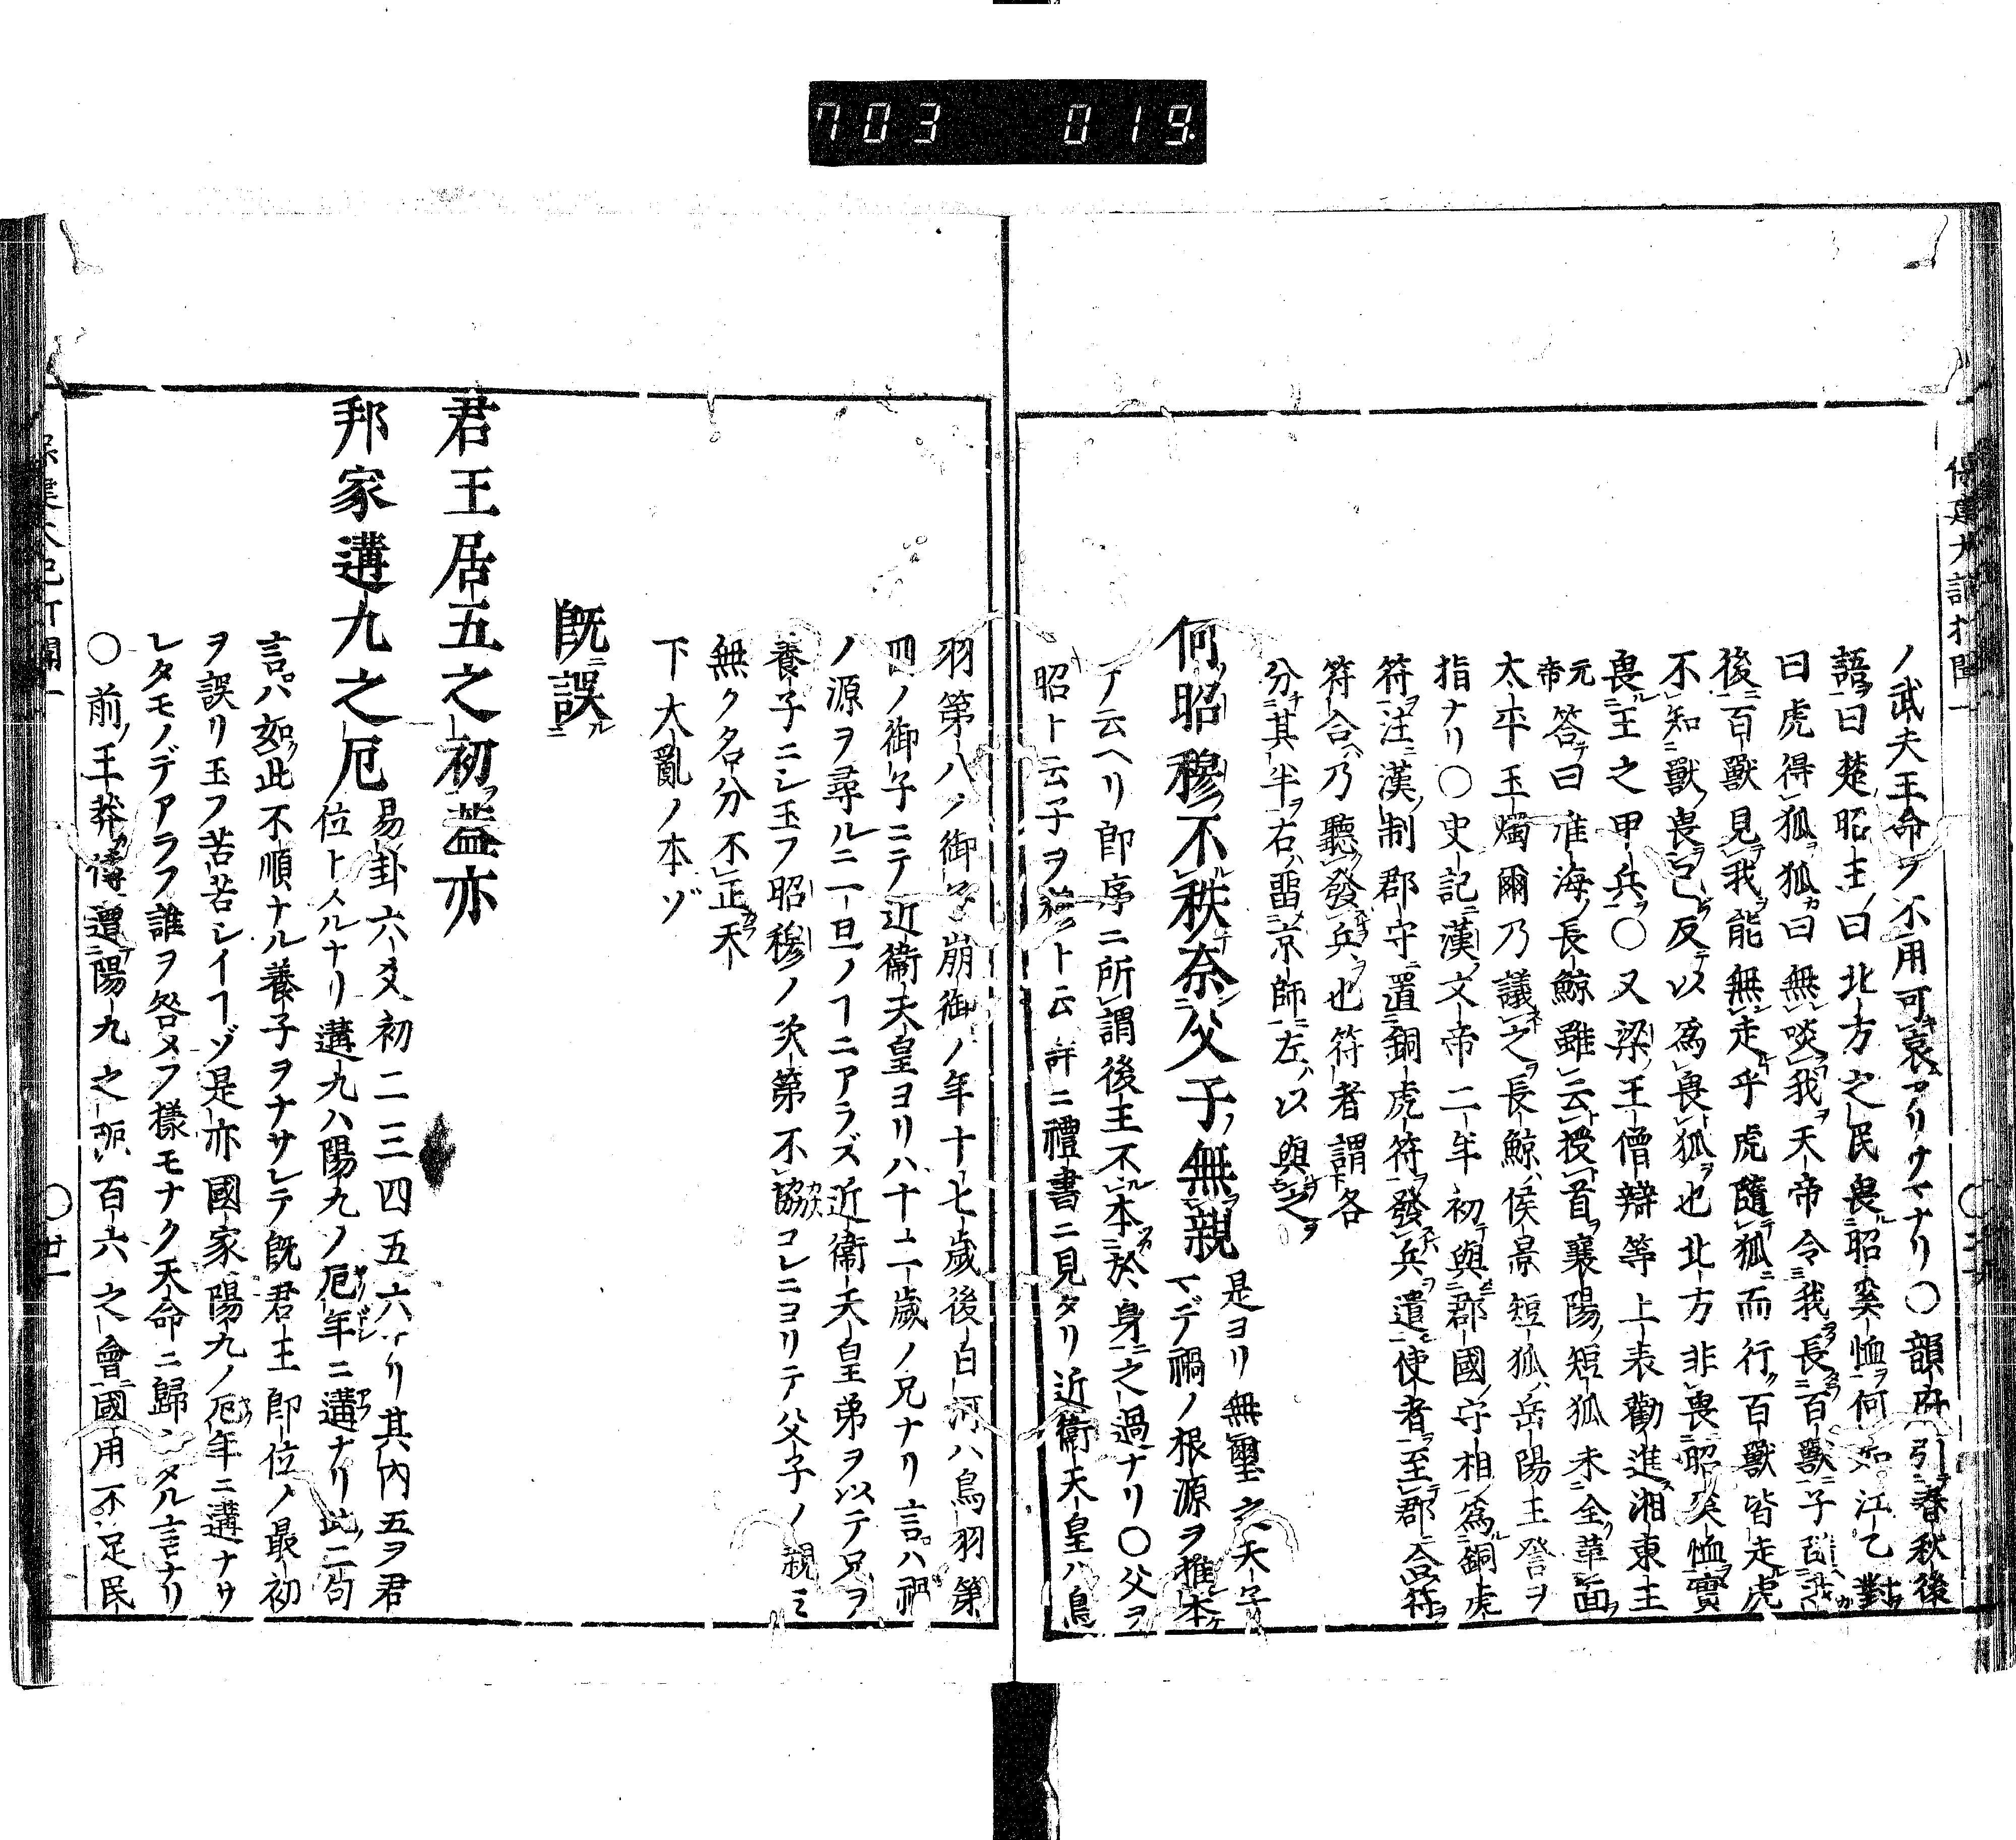 703 019
ノ武夫王命ヲ不用可哀アリサマナリ〇韻府引春秋後
語曰楚昭王曰北方之民畏昭奚恤何如江乙對
曰虎得狐狐曰無啖我天帝令我長百獸子隨我
後百獸見我能無走乎虎隨狐而行百獸皆走虎
不知獸畏己反以為畏狐也北方非畏昭奚恤實
畏王之甲兵〇又梁王僧辯等上表勸進湘東王
元帝答曰淮海長鯨雖云授首襄陽短狐未全革面
太平玉燭爾乃議之長鯨侯景短狐岳陽王詧ヲ
指ナリ〇史記漢文帝二年初與郡國守相為銅虎
符注漢制郡守置銅虎符發兵遣使者至郡合符
符合乃聽發兵也符者謂各
分其半右留京師左以與之
何昭穆不秩奈父子無親
是ヨリ無璽云天子
マデ禍ノ根源ヲ推本
テ云ヘリ即序ニ所謂後主不本於身之過ナリ〇父ヲ
昭ト云子ヲ穆ト云詳ニ禮書ニ見タリ近衞天皇ハ鳥
羽第八ノ御子崩御ノ年十七歳後白河ハ鳥羽第
四ノ御子ニテ近衞天皇ヨリハ十二歳ノ兄ナリ言ハ禍
ノ源ヲ尋ルニ一旦ノヿニアラズ近衞天皇弟ヲ以テ兄ヲ
養子ニシ玉フ昭穆ノ次第不協コレニヨリテ父子ノ親ミ
無ク名分不正天
下大亂ノ本ゾ
既誤
君王居五之初蓋亦
邦家遘九之厄
易卦六爻初二三四五六アリ其内五ヲ君
位トスルナリ遘九ハ陽九ノ厄年ニ遘ナリ此二句
言ハ如此不順ナル養子ヲナサレテ既君主即位ノ最初
ヲ誤リ玉フ苦苦シイヿゾ是亦國家陽九ノ厄年ニ遘ナサ
レタモノデアラフ誰ヲ咎メフ樣モナク天命ニ歸シタル言ナリ
〇前王莽傳遭陽九之阨百六之會國用不足民
〇廿一